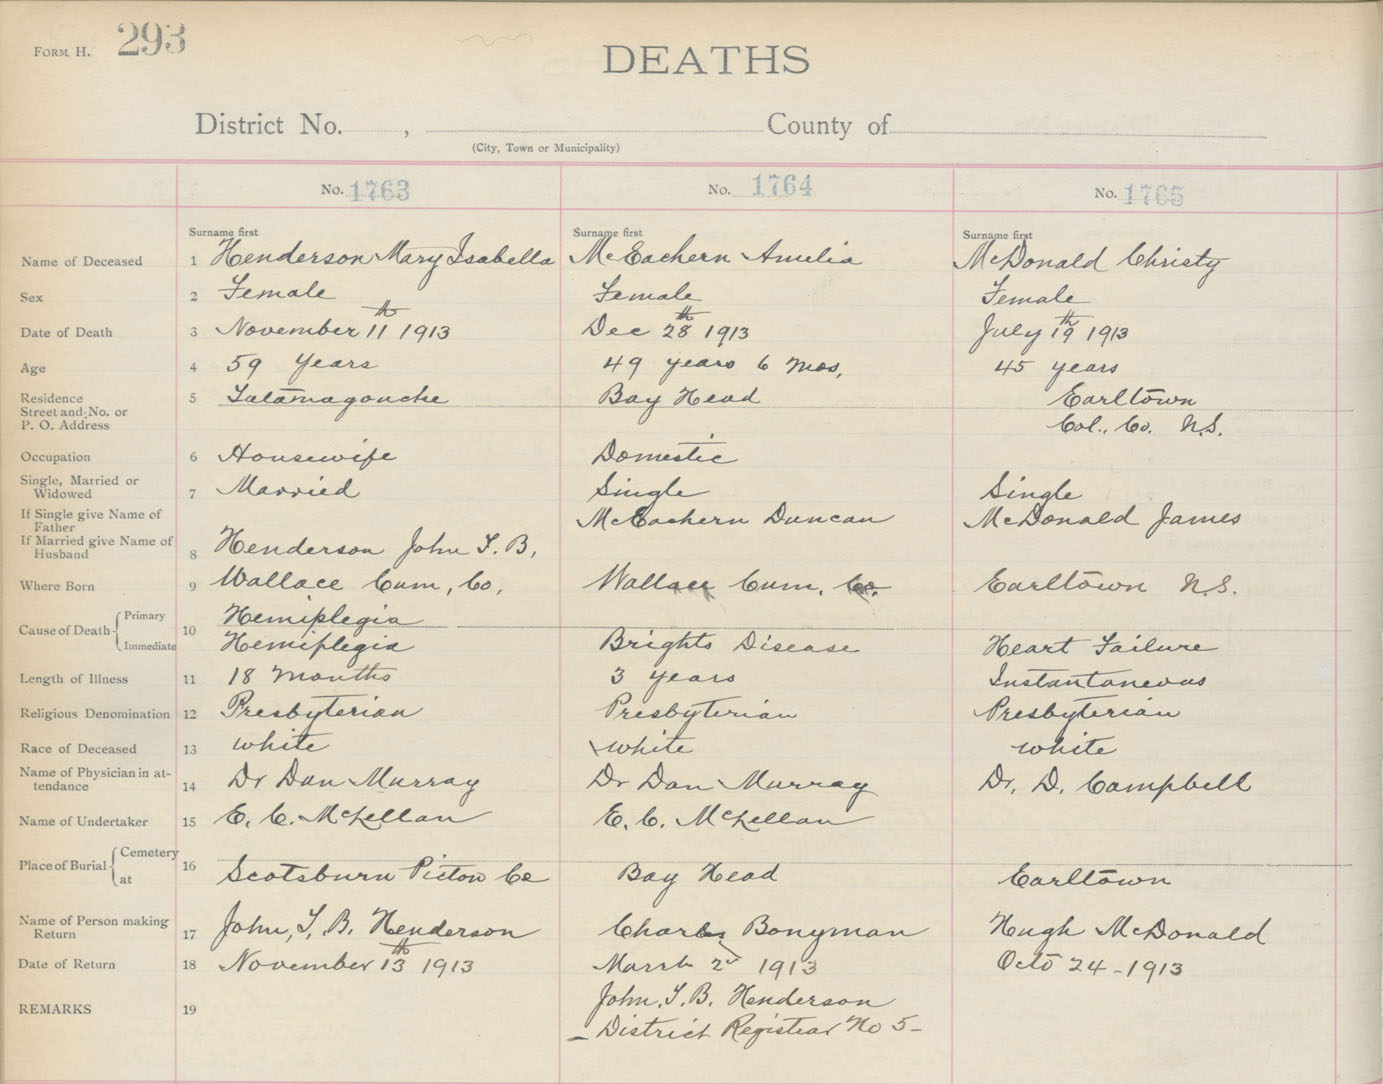 FORM H. 293
DEATHS
District No. , County of
(City, Town or Municipality)
No. 1763 No. 1764 No. 1765
Surname first Surname first Surname first
Name of Deceased 1 Henderson Mary Isabella McEachern Amelia McDonald Christy
Sex 2 Female Female Female
Date of Death 3 November 11th 1913 Dec 28th 1913 July 19th 1913
Age 4 59 Years 49 years 6 Mos, 45 years
Residence 5 Tatamagouche Bay Head Earltown
Street and No. or
P. O. Address Col., Co. N.S.
Occupation 6 Housewife Domestic
Single, Married or
Widowed 7 Married Single Single
If Single give Name of
Father McEachern Duncan McDonald James
If Married give Name of
Husband 8 Henderson John T. B,
Where Born 9 Wallace Cum, Co, Wallace Cum. Co. Earltown N.S.
Cause of Death Primary Hemiplegia
10
Immediate Hemiplegia Brights Disease Heart Failure
Length of Illness 11 18 Months 3 years Instantaneous
Religious Denomination 12 Presbyterian Presbyterian Presbyterian
Race of Deceased 13 white white white
Name of Physician in at-
tendance 14 Dr Dan Murray Dr Dan Murray Dr. D. Campbell
Name of Undertaker 15 E. C. McLellan E. C. McLellan
Place of Burial Cemetery 16
at Scotsburn Pictou Co Bay Head Earltown
Name of Person making
Return 17 John, T, B. Henderson Charles Bonyman Hugh McDonald
Date of Return 18 November 13th 1913 March 2d 1913 Octo 24 - 1913
REMARKS 19 John. T. B. Henderson
- District Registrar No 5 -